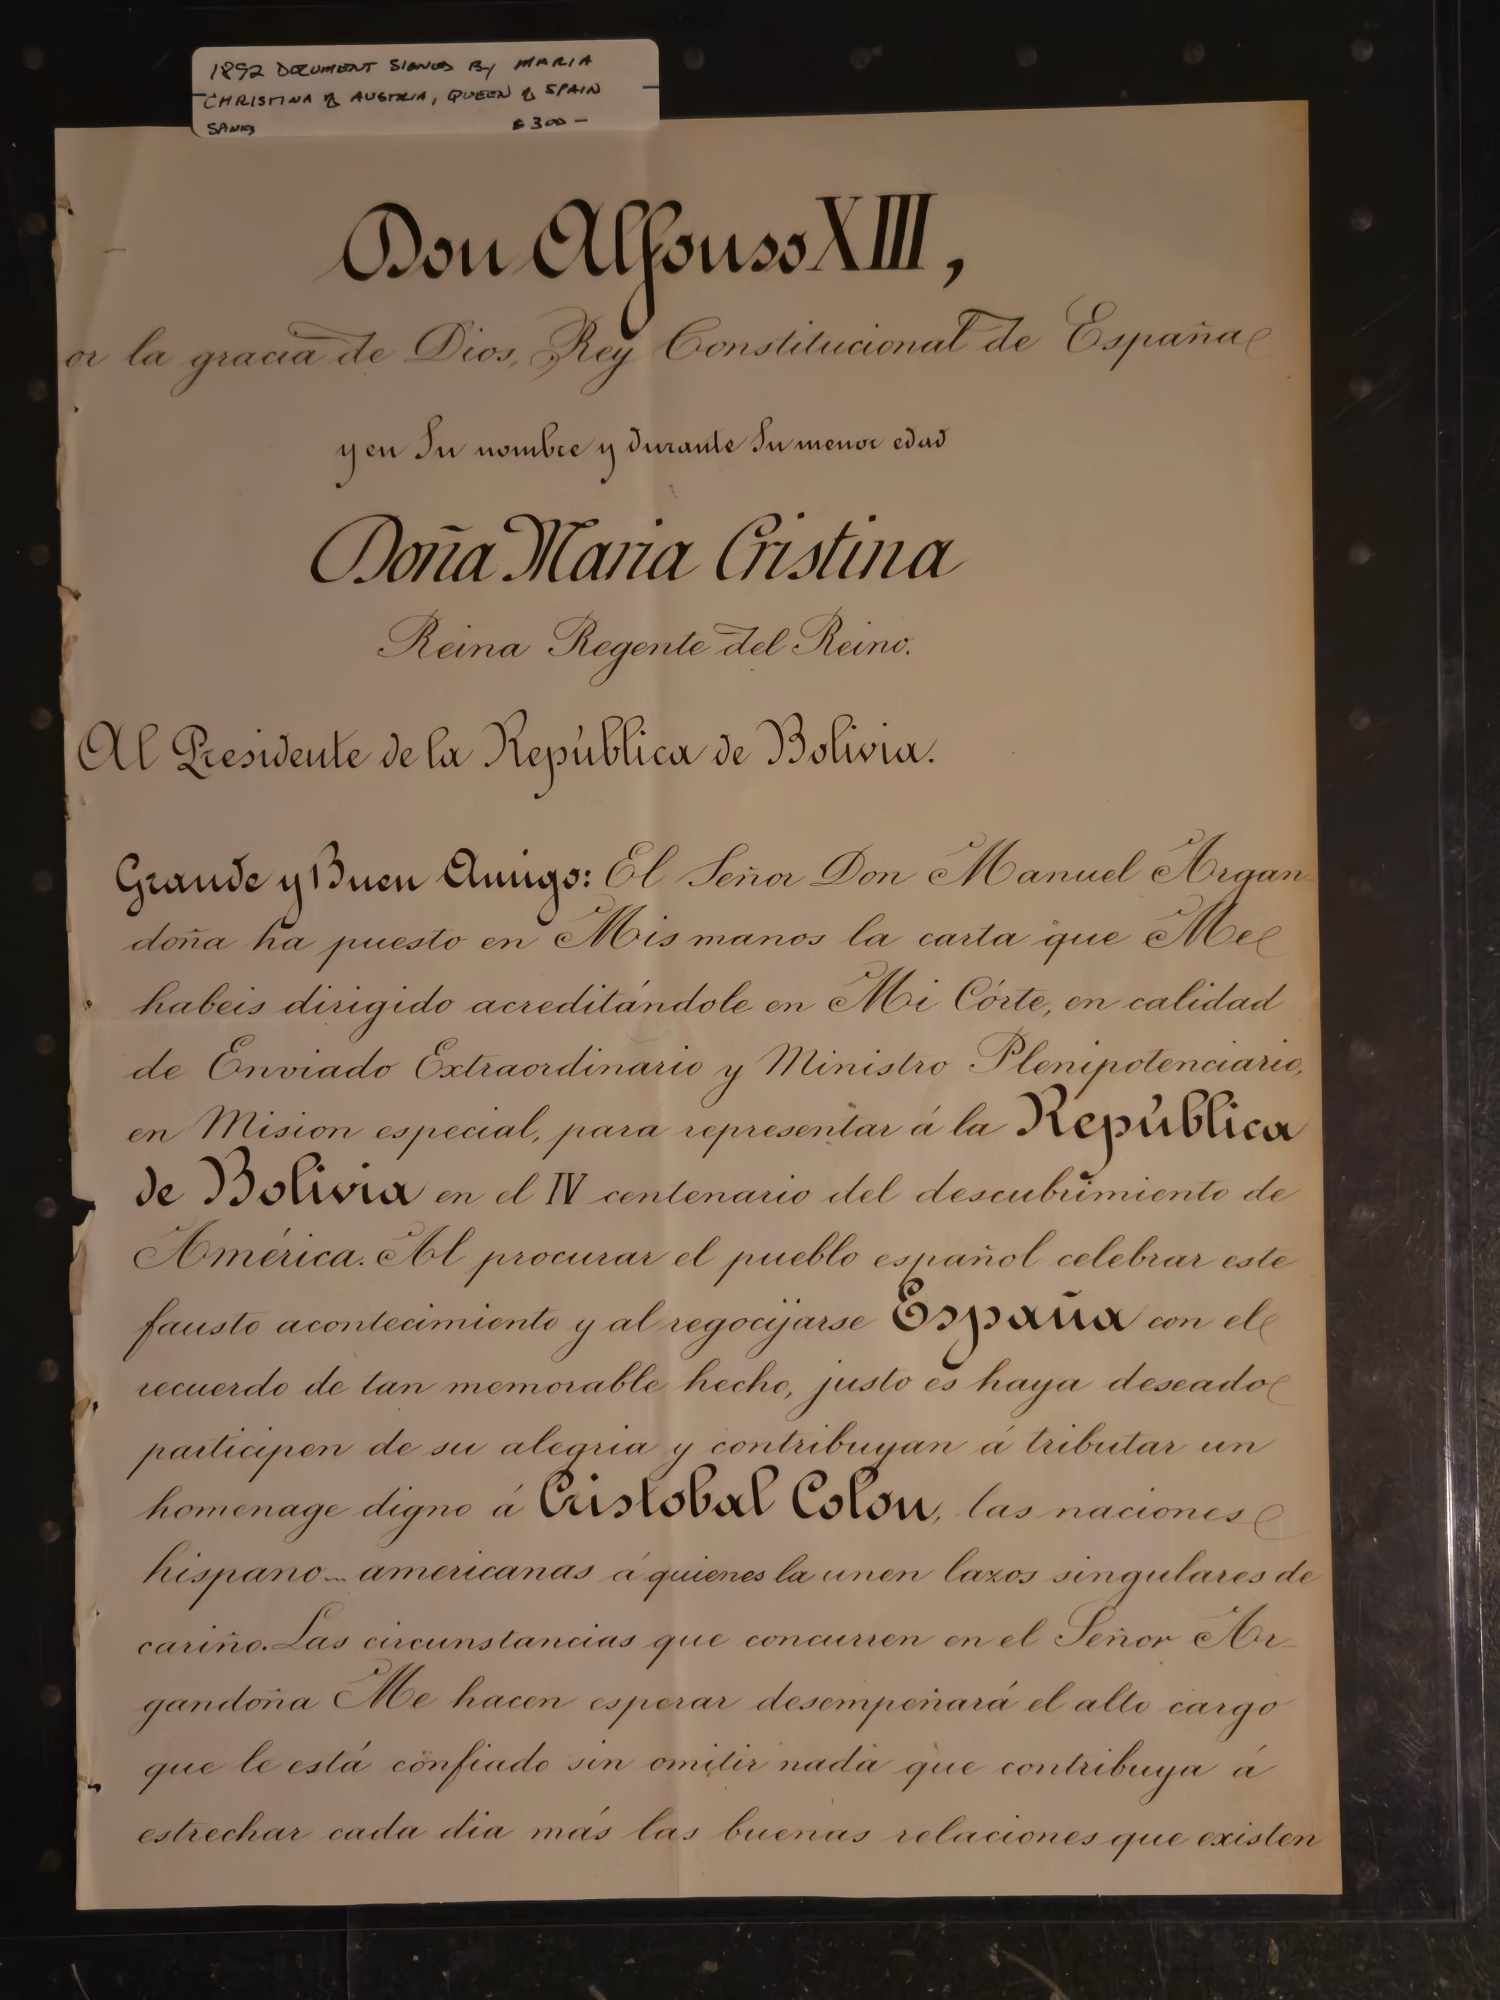 1892 DOCUMENT SIGNED By MARIA
CHRISTINA of AUSTRIA, QUEEN of SPAIN
$300 —
Don Alfonso XIII,
or la gracia de Dios, Rey Constitucional de España
y en Su nombre y durante Su menor edad
Doña Maria Cristina
Reina Regente del Reino.
Al Presidente de la República de Bolivia.
Grande y Buen Amigo: El Señor Don Manuel Argan-
doña ha puesto en Mis manos la carta que Me
habeis dirigido acreditándole en Mi Córte, en calidad
de Enviado Extraordinario y Ministro Plenipotenciario,
en Mision especial, para representar á la República
de Bolivia en el IV centenario del descubrimiento de
América. Al procurar el pueblo español celebrar este
fausto acontecimiento y al regocijarse España con el
recuerdo de tan memorable hecho, justo es haya deseado
participen de su alegria y contribuyan á tributar un
homenage digno á Cristobal Colon, las naciones
hispano-americanas á quienes la unen lazos singulares de
cariño. Las circunstancias que concurren en el Señor Ar-
gandoña Me hacen esperar desempeñará el alto cargo
que le está confiado sin omitir nada que contribuya á
estrechar cada dia más las buenas relaciones que existen